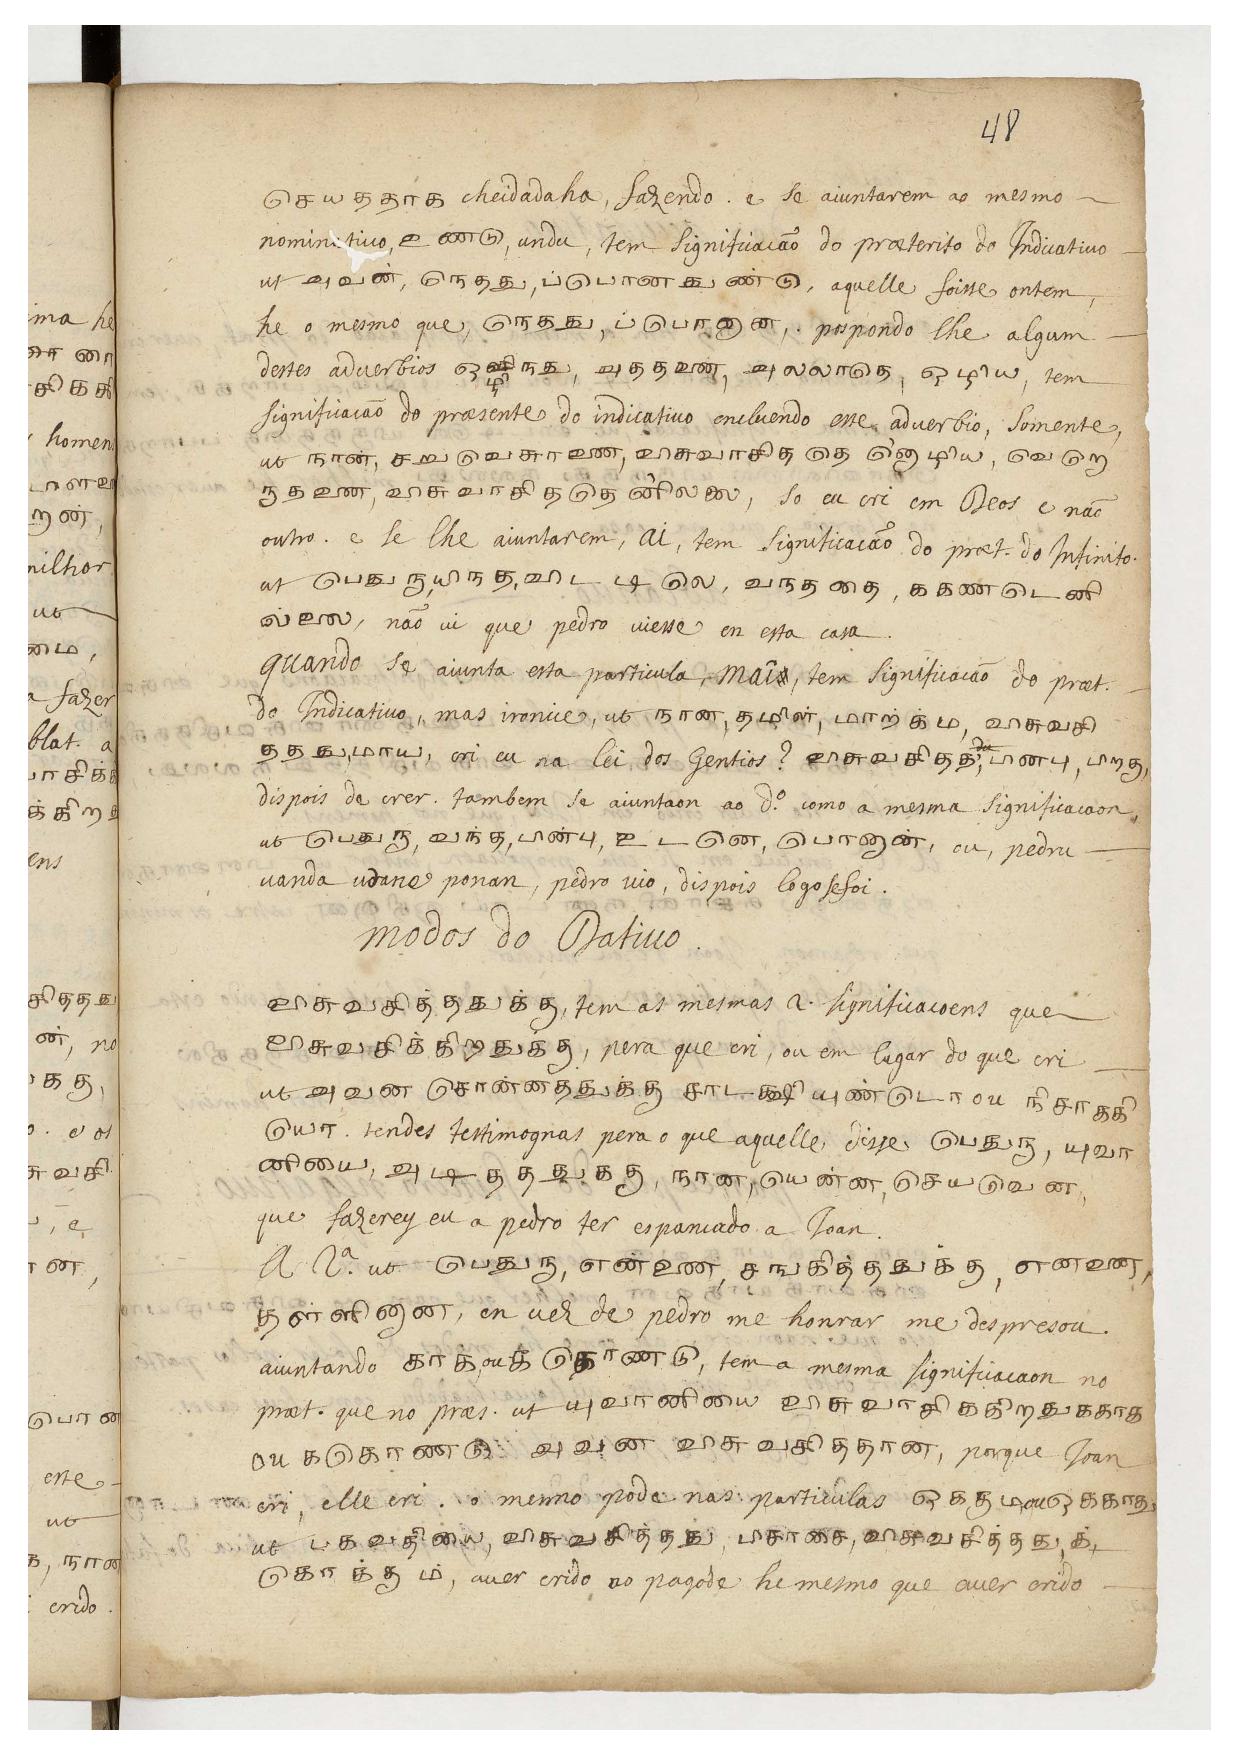 48
செயததாக cheidadaha, fazendo. e se aiuntarem ao mesmo
nominatiuo, உணடு, undu, tem significacão do præterito do Indicatiuo
ut அவன், நெதது, ப்போனதுண்டு, aquelle foisse ontem,
he o mesmo que, நெதது, ப்போனான, . pospondo lhe algum
destes aduerbios அததனை, அலலாதெ, ஒழிய, tem
significacão do præsente do indicatiuo encluendo este aduerbio, somente,
ut நான், சறுவெசுரனை, விசுவாசித வெறெ
so eu cri em Deos e não
outro. e se lhe aiuntarem, ai, tem significacão do præt. do Infinito.
ut பெதுரு, யிநத, விடடிலெ, வநததை, ககணடெனி
ல்லை, não vi que pedro uiesse en esta casa.
quando se aiunta esta particula, mai, tem significacão do præt.
do Indicatiuo, mas ironice, ut நான, தமிள், மாற்க்ம, விசுவசி
தததுமாய, cri eu na lei dos Gentios? விசுவசிதத, பினபு, பிறகு,
dispois de crer. tambem se aiuntaon ao d.º como a mesma significacaon,
ut பெதுரு, வந்த, பின்பு, உடனெ, போனான், ou, pedru
uanda udane ponan, pedro uio, dispois logo se foi.
Modos do Datiuo.
விசுவசித்ததுக்கு, tem as mesmas 2. significacoens que
விசுவசிக்கிறதுக்கு, pera que cri, ou em lugar do que cri
ut அவன சொன்னததுக்கு சாடக்ஷியுண்டொ ou
tendes testimognas pera o que aquelle disse பெதுரு, யுவா
னியை, அடிதததுககு, நான, யென்ன, செயவென,
que fazerey eu a pedro ter espancado a Joan.
A 2.ª ut பெதுரு, என்னை, சஙகித்ததுக்கு, எனனை,
தள்ளினான, en uez de pedro me honrar me despresou.
aiuntando காக, ou க்கொண்டு, tem a mesma significacaon no
præt. que no præs. ut யுவானியை விசுவாசிககிறதுககாக
ou ககொணடு அவன விசுவசிததான, porque Joan
cri, elle cri. o mesmo pode nas particulas ou
ut பகவதியை, விசுவசித்தது, பிசாசை, விசுவசித்தது, க்,
கொக்கும், auer crido no pagode he mesmo que auer crido